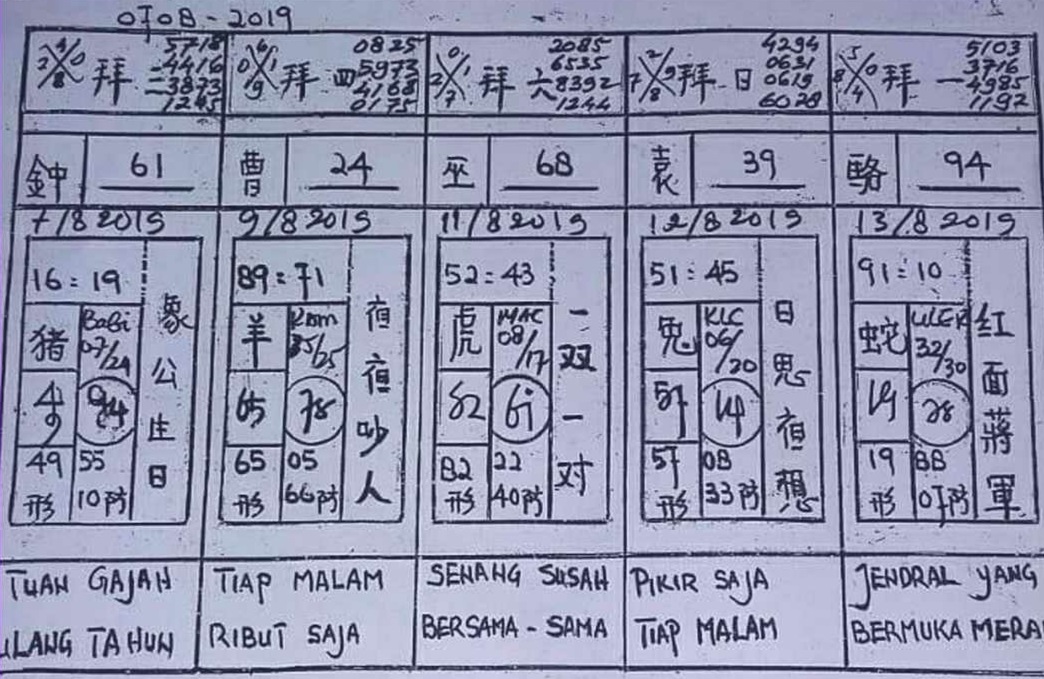 07-08-2019
4 2 0 8 拜 二 三 5718 4416 3873 1245
6 0 1 9 拜 四 0825 5973 4168 0175
0 2 1 7 拜 六 2085 6535 8392 1244
2 7 9 8 拜 日 4294 0631 0619 6028
5 8 0 4 拜 一 5103 3716 4985 1192
鈡 61
曹 24
巫 68
袁 39
駱 94
7/8 2019
9/8 2019
11/8 2019
12/8 2019
13/8 2019
16 = 19
猪 Babi 07/24
49
49 形 55 10 防
象公生日
89 = 71
羊 35/25
65 78
65 形 05 66 防
夜夜吵人
52 = 43
虎 MAC 08/17
82 61
82 形 22 40 防
一双一对
51 = 45
兔 KLC 06/20
57 14
57 形 08 33 防
日思夜想
91 = 10
蛇 ULER 32/30
19 28
19 形 88 07 防
紅面蔣軍
TUAN GAJAH
ULANG TAHUN
TIAP MALAM
RIBUT SAJA
SENANG SUSAH
BERSAMA - SAMA
PIKIR SAJA
TIAP MALAM
JENDRAL YANG
BERMUKA MERA